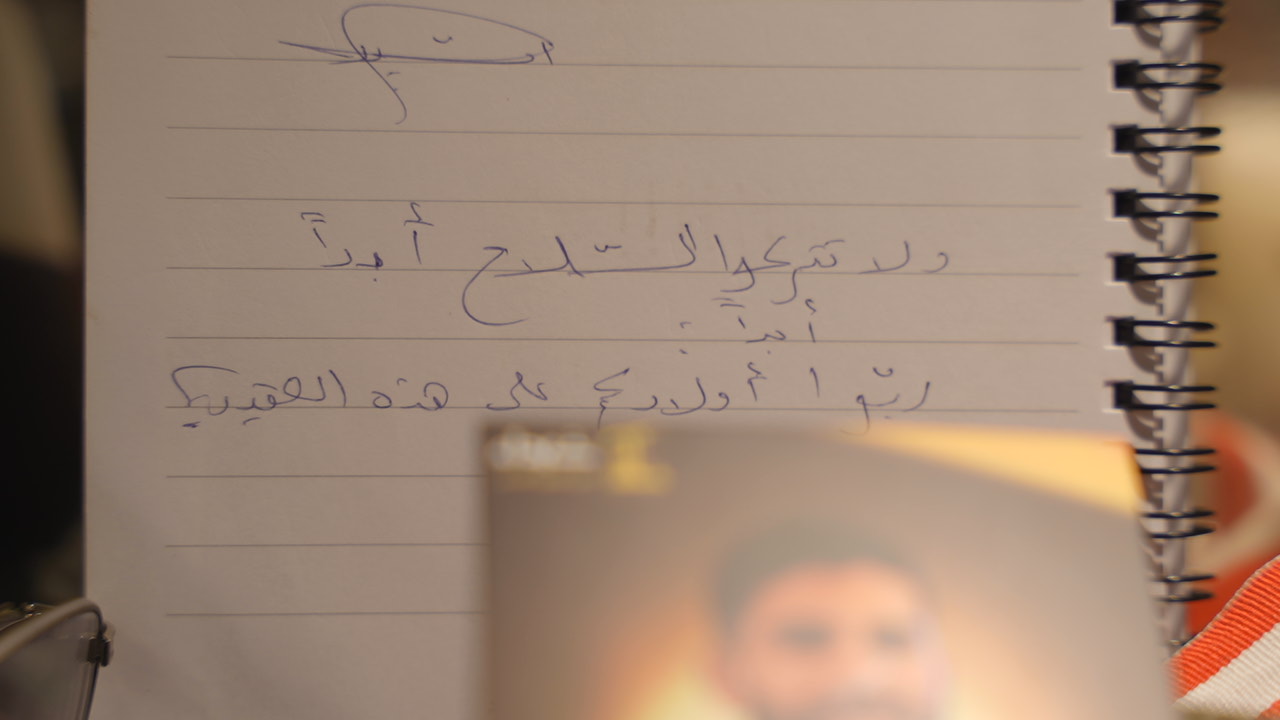 ولا تتركوا السّلاح أبداً
أبداً :
ربّوا أولادكم على هذه العقيدة